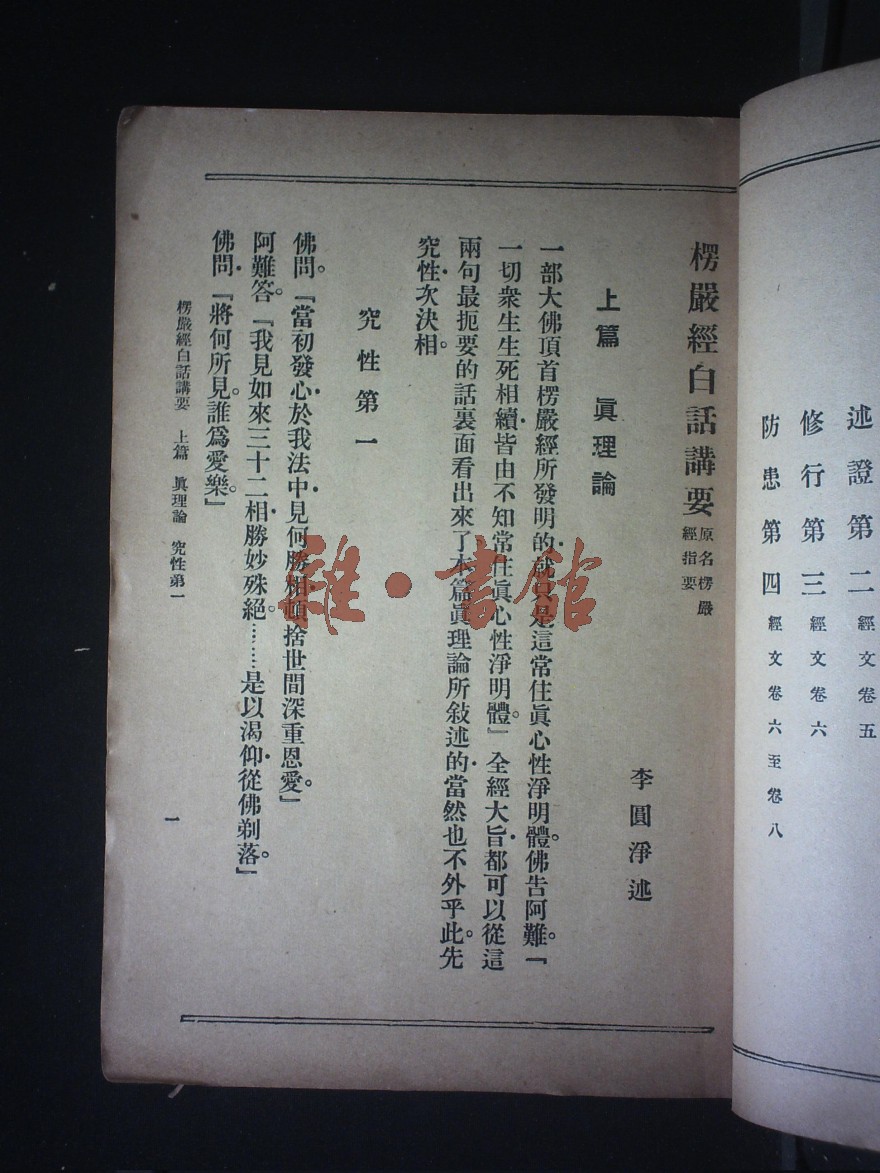 述證第二 經文卷五
修行第三 經文卷六
防患第四 經文卷六至卷八
楞嚴經白話講要 原名楞嚴
經指要
李圓淨述
上篇 眞理論
一部大佛頂首楞嚴經所發明的就只是這常住眞心性淨明體。佛告阿難。『
一切衆生生死相續皆由不知常住眞心性淨明體。』全經大旨都可以從這
兩句最扼要的話裏面看出來了本篇眞理論所敍述的當然也不外乎此。先
究性次決相。
究性第一
佛問。『當初發心於我法中見何勝相頓捨世間深重恩愛。』
阿難答。『我見如來三十二相勝妙殊絕……是以渴仰從佛剃落。』
佛問『將何所見。誰爲愛樂。』
楞嚴經白話講要 上篇 眞理論 究性第一
一
雜·書館